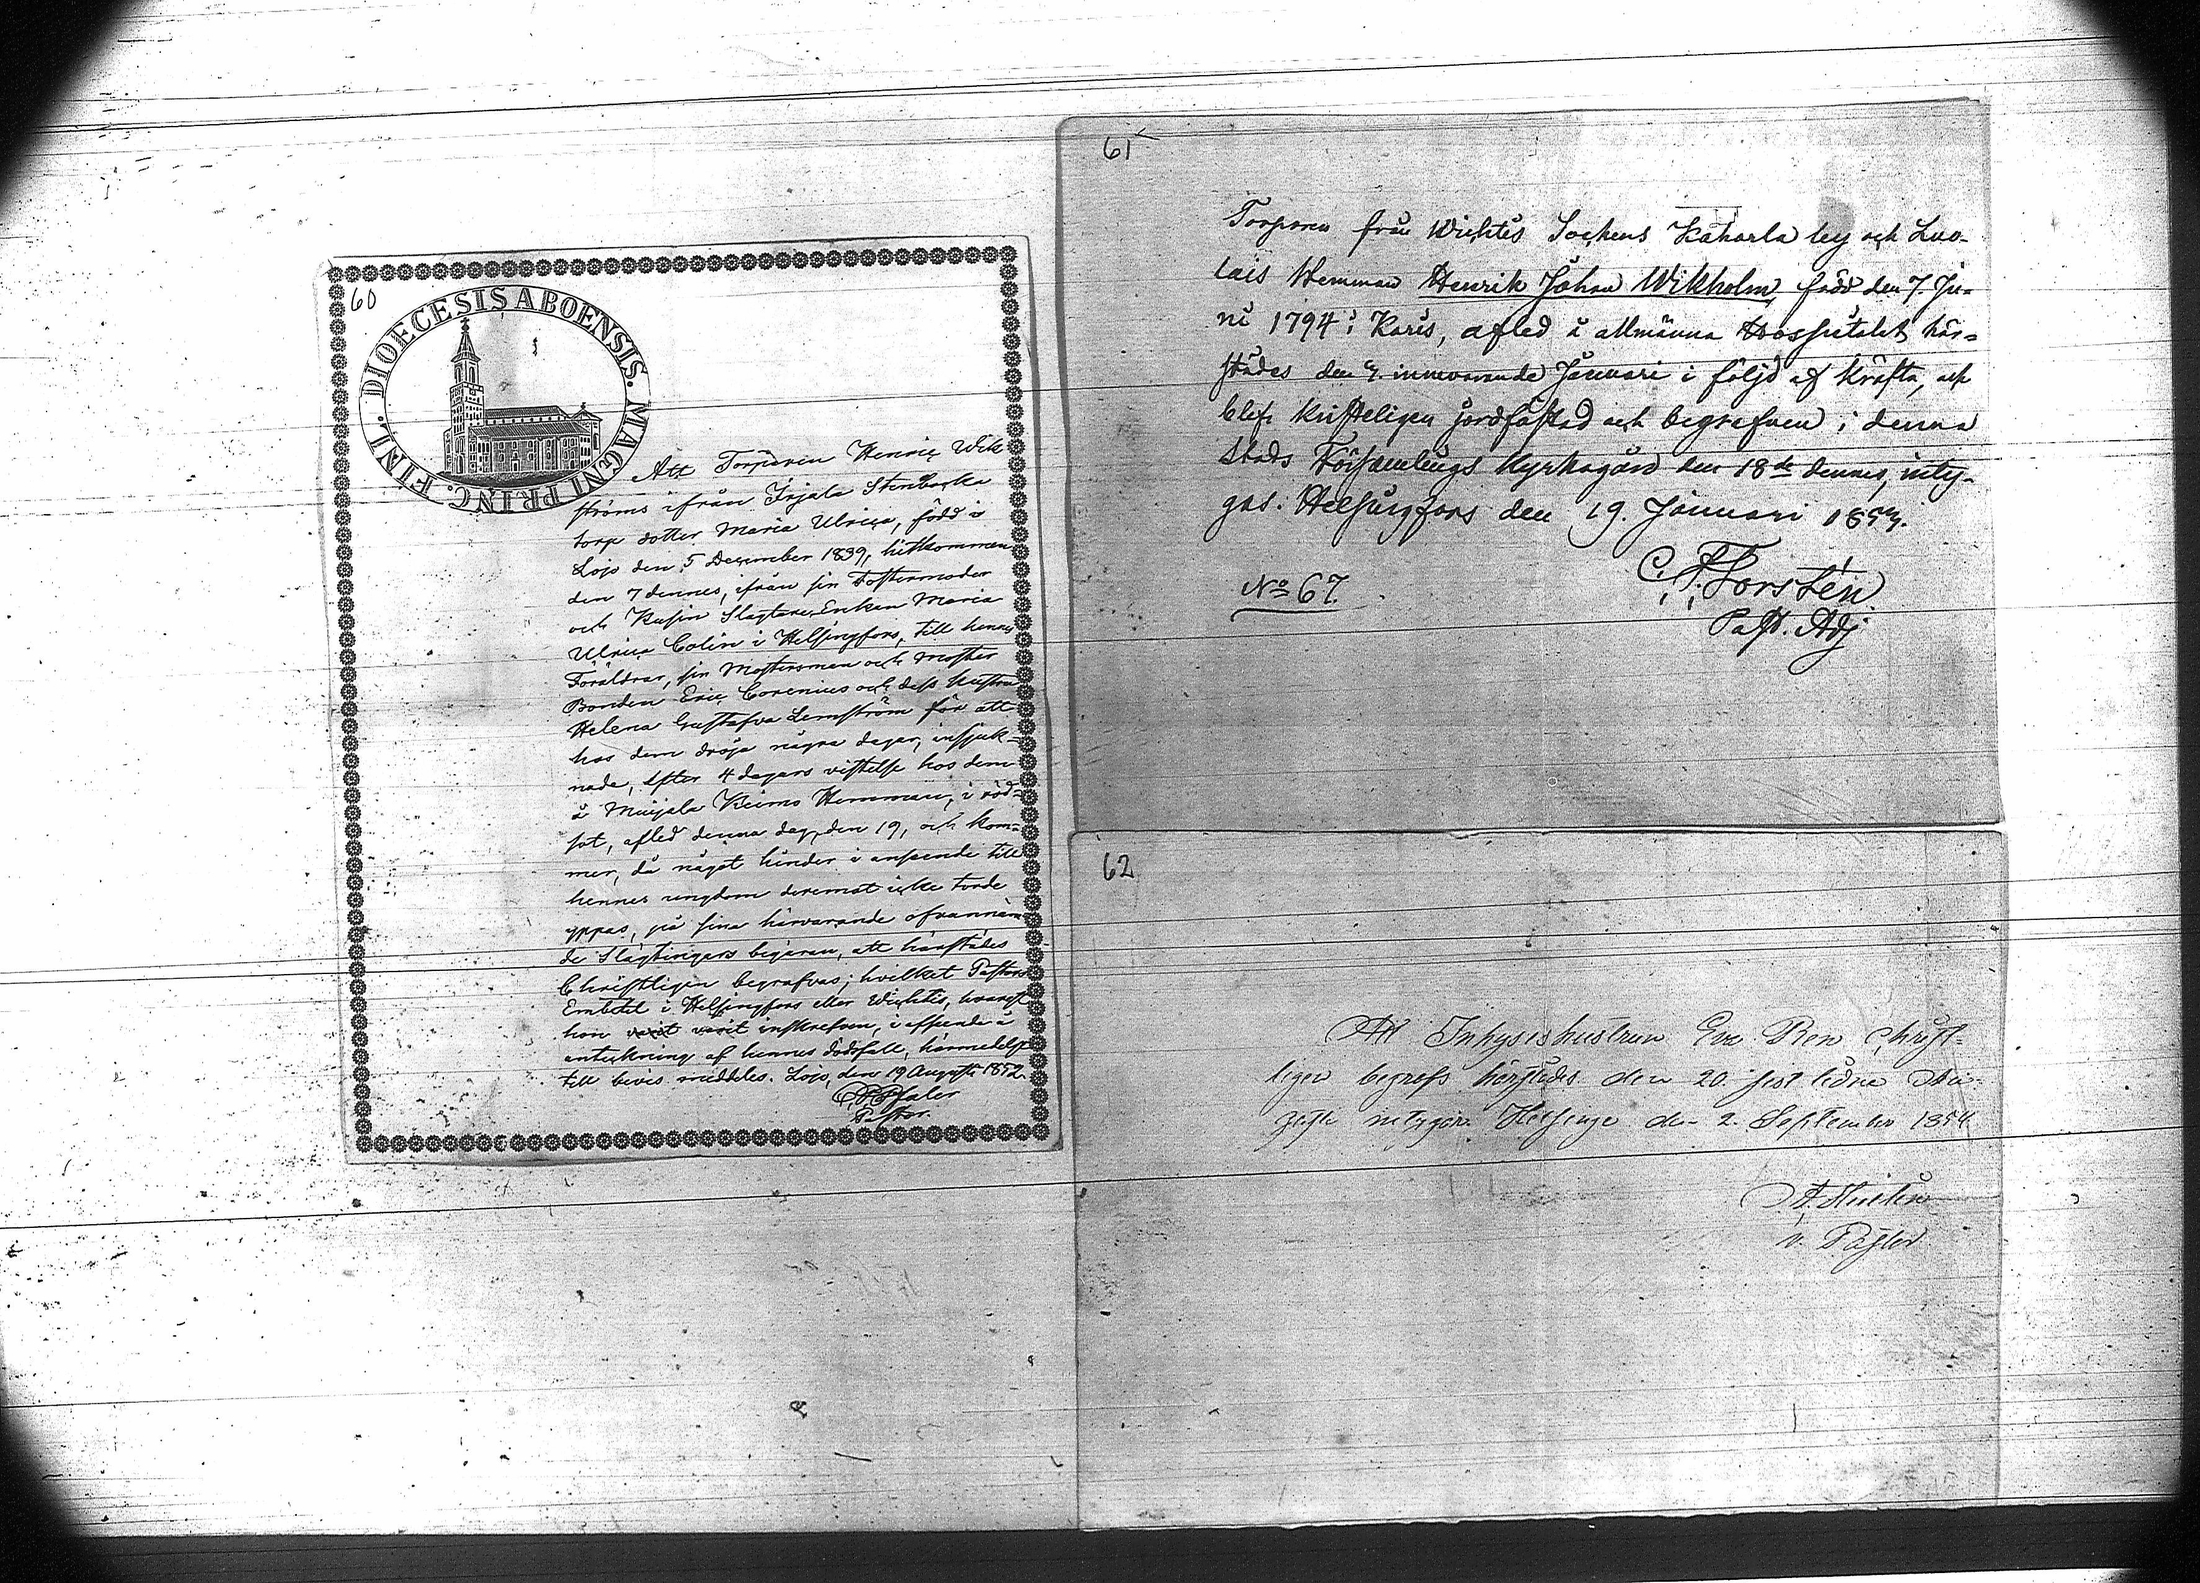 60
DIOECESIS ABOENSIS. MAGNI PRINC. FINL.
Att Torparen Henric Wik
ströms ifrån Irjala Stenbacka
torp dotter Maria Ulrica, född i
Lojo den 5 December 1839, hitkommen
den 7 dennes, ifrån sin Fostermoder
och Kusin Slagtare-Enkan Maria
Ulrica Colin i Helsingfors, till hennes
Föräldrar, sin Mostersman och Moster
Bonden Eric Corenius och dess hustru
Helena Gustafva Lernström för att
hos dem dröja några dagar, insjuk=
nade, efter 4 dagars vistelse hos dem
å Muijala Heimo Hemman, i röd=
sot, afled denna dag, den 19, och kom=
mer, då något hinder i anseende till
hennes ungdom deremot icke torde
yppas, på sina härvarande ofvannäm
de Slägtingars begäran, att härstädes
Christligen begrafvas; hvilket Pastors
Embetet i Helsingfors eller Wichtis, hvarest
hon varit inskrefven, i afseende å
anteckning af hennes dödsfall, härmedelst
till bevis meddeles. Lojo, den 19 Augusti 1852.
Pastor.
61
Torparen från Wichtis Sockens Kaharla by och Luo-
lais Hemman Henrik Johan Wikholm, född den 7. Ju-
ni 1794 i Karis, afled å allmänna Hospitalet här-
städes den innevarande Januari i följd af Kräfta, och
blef kristeligen jordfästad och begrafven i denna
Stads Församlings Kyrkogård den 18de dennes, inty-
gas. Helsingfors den 19. Januari
No 67.
C. F. Forstén
Past. Adj
62
Att Inhysishustrun Eva Ren Christ-
ligen begrafs härstädes den 20. sist lidne Au-
gusti intygar. Helsinge den 2. September 1854
v. Pastor